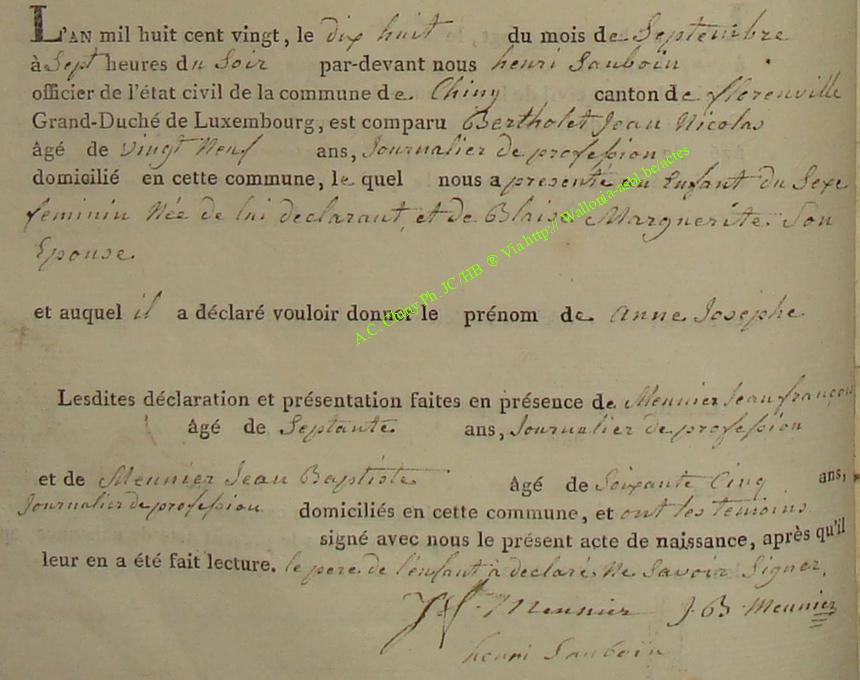 L'AN mil huit cent vingt, le dix huit du mois de Septembre
à Sept heures du Soir par-devant nous henri Sauboin
officier de l'état civil de la commune de Chiny canton de florenville
Grand-Duché de Luxembourg, est comparu Bertholet Jean Nicolas
âgé de vingt Neuf ans, Journalier de profession
domicilié en cette commune, le quel nous a presente un Enfant du Sexe
feminin Née de lui declarant, et de Blaise Marguerite Son
Epouse.
A.C. Chiny Ph. JC/HB ® Via http://wallonia-asbl.be/actes
et auquel il a déclaré vouloir donner le prénom de Anne Josephe
Lesdites déclaration et présentation faites en présence de Meunier Jean françois
âgé de Septante ans, Journalier de profession
et de Meunier Jean Baptiste âgé de Soixante Cinq ans,
Journalier de profession domiciliés en cette commune, et ont les temoins
signé avec nous le présent acte de naissance, après qu'il
leur en a été fait lecture. le pere de l'enfant a declaré Ne Savoir Signer.
J f. Meunier J. B. Meunier
henri Sauboin